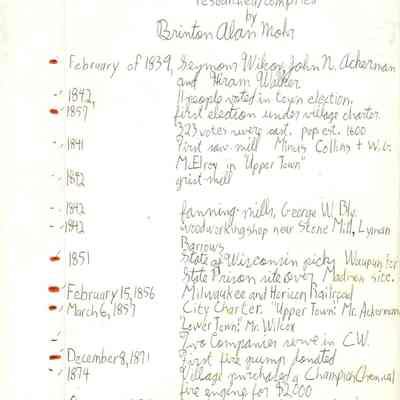 researched/compiled
by
Brinton Alan Mohr
February of 1839, Seymour Wilcox, John N. Ackerman
and Hiram Walker
1842, 11 people voted in town election.
1857 first election under village charter.
323 votes were cast. pop. est. 1600
1841 First saw-mill Minus Collins + W.
McElroy in "Upper Town"
1842 grist-mill
1842 fanning-mills, George W. Bly.
1842 woodworking shop near Stone Mill, Lyman
Barrows
1851 State of Wisconsin picks Waupun for
State Prison site over Madison site.
February 15, 1856 Milwaukee and Horicon Railroad
March 6, 1857 City Charter. "Upper Town: Mr. Ackerman
"Lower Town: Mr. Wilcox
Two Companies serve in C.W.
December 8, 1871 First fire pump donated
1874 Village purchased a Champion Chemical
fire engine for $2000